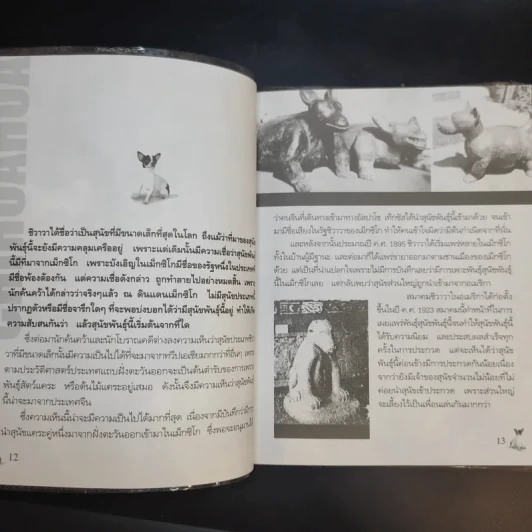 CHIHUAHUA
ชิวาวาได้ชื่อว่าเป็นสุนัขที่มีขนาดเล็กที่สุดในโลก ถึงแม้ว่าที่มาของสุนัข
พันธุ์นี้จะยังมีความคลุมเครืออยู่ เพราะแต่เดิมนั้นมีความเชื่อว่าสุนัขพันธุ์
นี้มีที่มาจากเม็กซิโก เพราะบังเอิญในเม็กซิโกมีชื่อของรัฐหนึ่งในประเทศที่
มีชื่อพ้องต้องกัน แต่ความเชื่อดังกล่าว ถูกทำลายไปอย่างหมดสิ้น เพราะ
นักค้นคว้าได้กล่าวว่าจริงๆแล้ว ณ ดินแดนเม็กซิโก ไม่มีสุนัขประเภทนี้
ปรากฏตัวหรือมีชื่อจารึกใดๆ ที่จะพอบ่งบอกได้ว่ามีสุนัขพันธุ์นี้อยู่ ทำให้เกิด
ความสับสนกันว่า แล้วสุนัขพันธุ์นี้เริ่มต้นจากที่ใด
ซึ่งต่อมานักค้นคว้าและนักโบราณคดีต่างลงความเห็นว่าสุนัขประเภท
วาที่มีขนาดเล็กนั้นมีความเป็นไปได้ที่จะมาจากทวีปเอเชียมากกว่าที่อื่นๆ เพราะ
ตามประวัติศาสตร์ประเทศแถบตะวันออกจะเป็นต้นตำรับของการเพาะ
พันธุ์สัตว์แคระ หรือต้นไม้แคระอยู่เสมอ ดังนั้นจึงมีความเห็นว่าสุนัขพันธุ์
นี้น่าจะมาจากประเทศจีน
ซึ่งความเห็นนี้น่าจะมีความเป็นไปได้มากที่สุด เนื่องจากมีบันทึกว่ามีการ
นำสุนัขแคระคู่หนึ่งมาจากฝั่งตะวันออกเข้ามาในเม็กซิโก ซึ่งพอจะอนุมานได้
12
ว่าคนจีนที่เดินทางเข้ามาทางอลาสก้าได้นำสุนัขพันธุ์นี้เข้ามาด้วย จนเข้า
มามีชื่อเสียงในรัฐชิวาวาของเม็กซิโก ทำให้คนเข้าใจผิดว่ามีต้นกำเนิดจากที่นั่น
และหลังจากนั้นประมาณปี ค.ศ. 1895 ชิวาวาได้เริ่มแพร่หลายในเม็กซิโก
ทั้งในบ้านผู้มีฐานะ และต่อมาก็ได้แพร่ขยายออกมาตามชานเมืองของเม็กซิโก
ด้วย แต่เป็นที่น่าแปลกเพราะไม่มีการบันทึกเลยว่ามีการเพาะพันธุ์สุนัขพันธุ์
นี้ในเม็กซิโกเลย แต่กลับพบว่าสุนัขส่วนใหญ่ถูกนำเข้ามาจากอเมริกา
สมาคมชิวาวาในอเมริกาได้ก่อตั้ง
ขึ้นในปี ค.ศ. 1923 สมาคมนี้ทำหน้าที่ในการ
เผยแพร่พันธุ์สุนัขพันธุ์นี้จนทำให้สุนัขพันธุ์นี้
ได้รับความนิยม และประสบผลสำเร็จทุก
ครั้งในการประกวด แต่จะเห็นได้ว่าสุนัข
พันธุ์นี้ค่อนข้างมีการประกวดกันน้อยเนื่อง
จากว่ายังมีเจ้าของสุนัขจำนวนไม่น้อยที่ไม่
ค่อยนำสุนัขเข้าประกวด เพราะส่วนใหญ่
จะเลี้ยงไว้เป็นเพื่อนเล่นกันมากกว่า
13